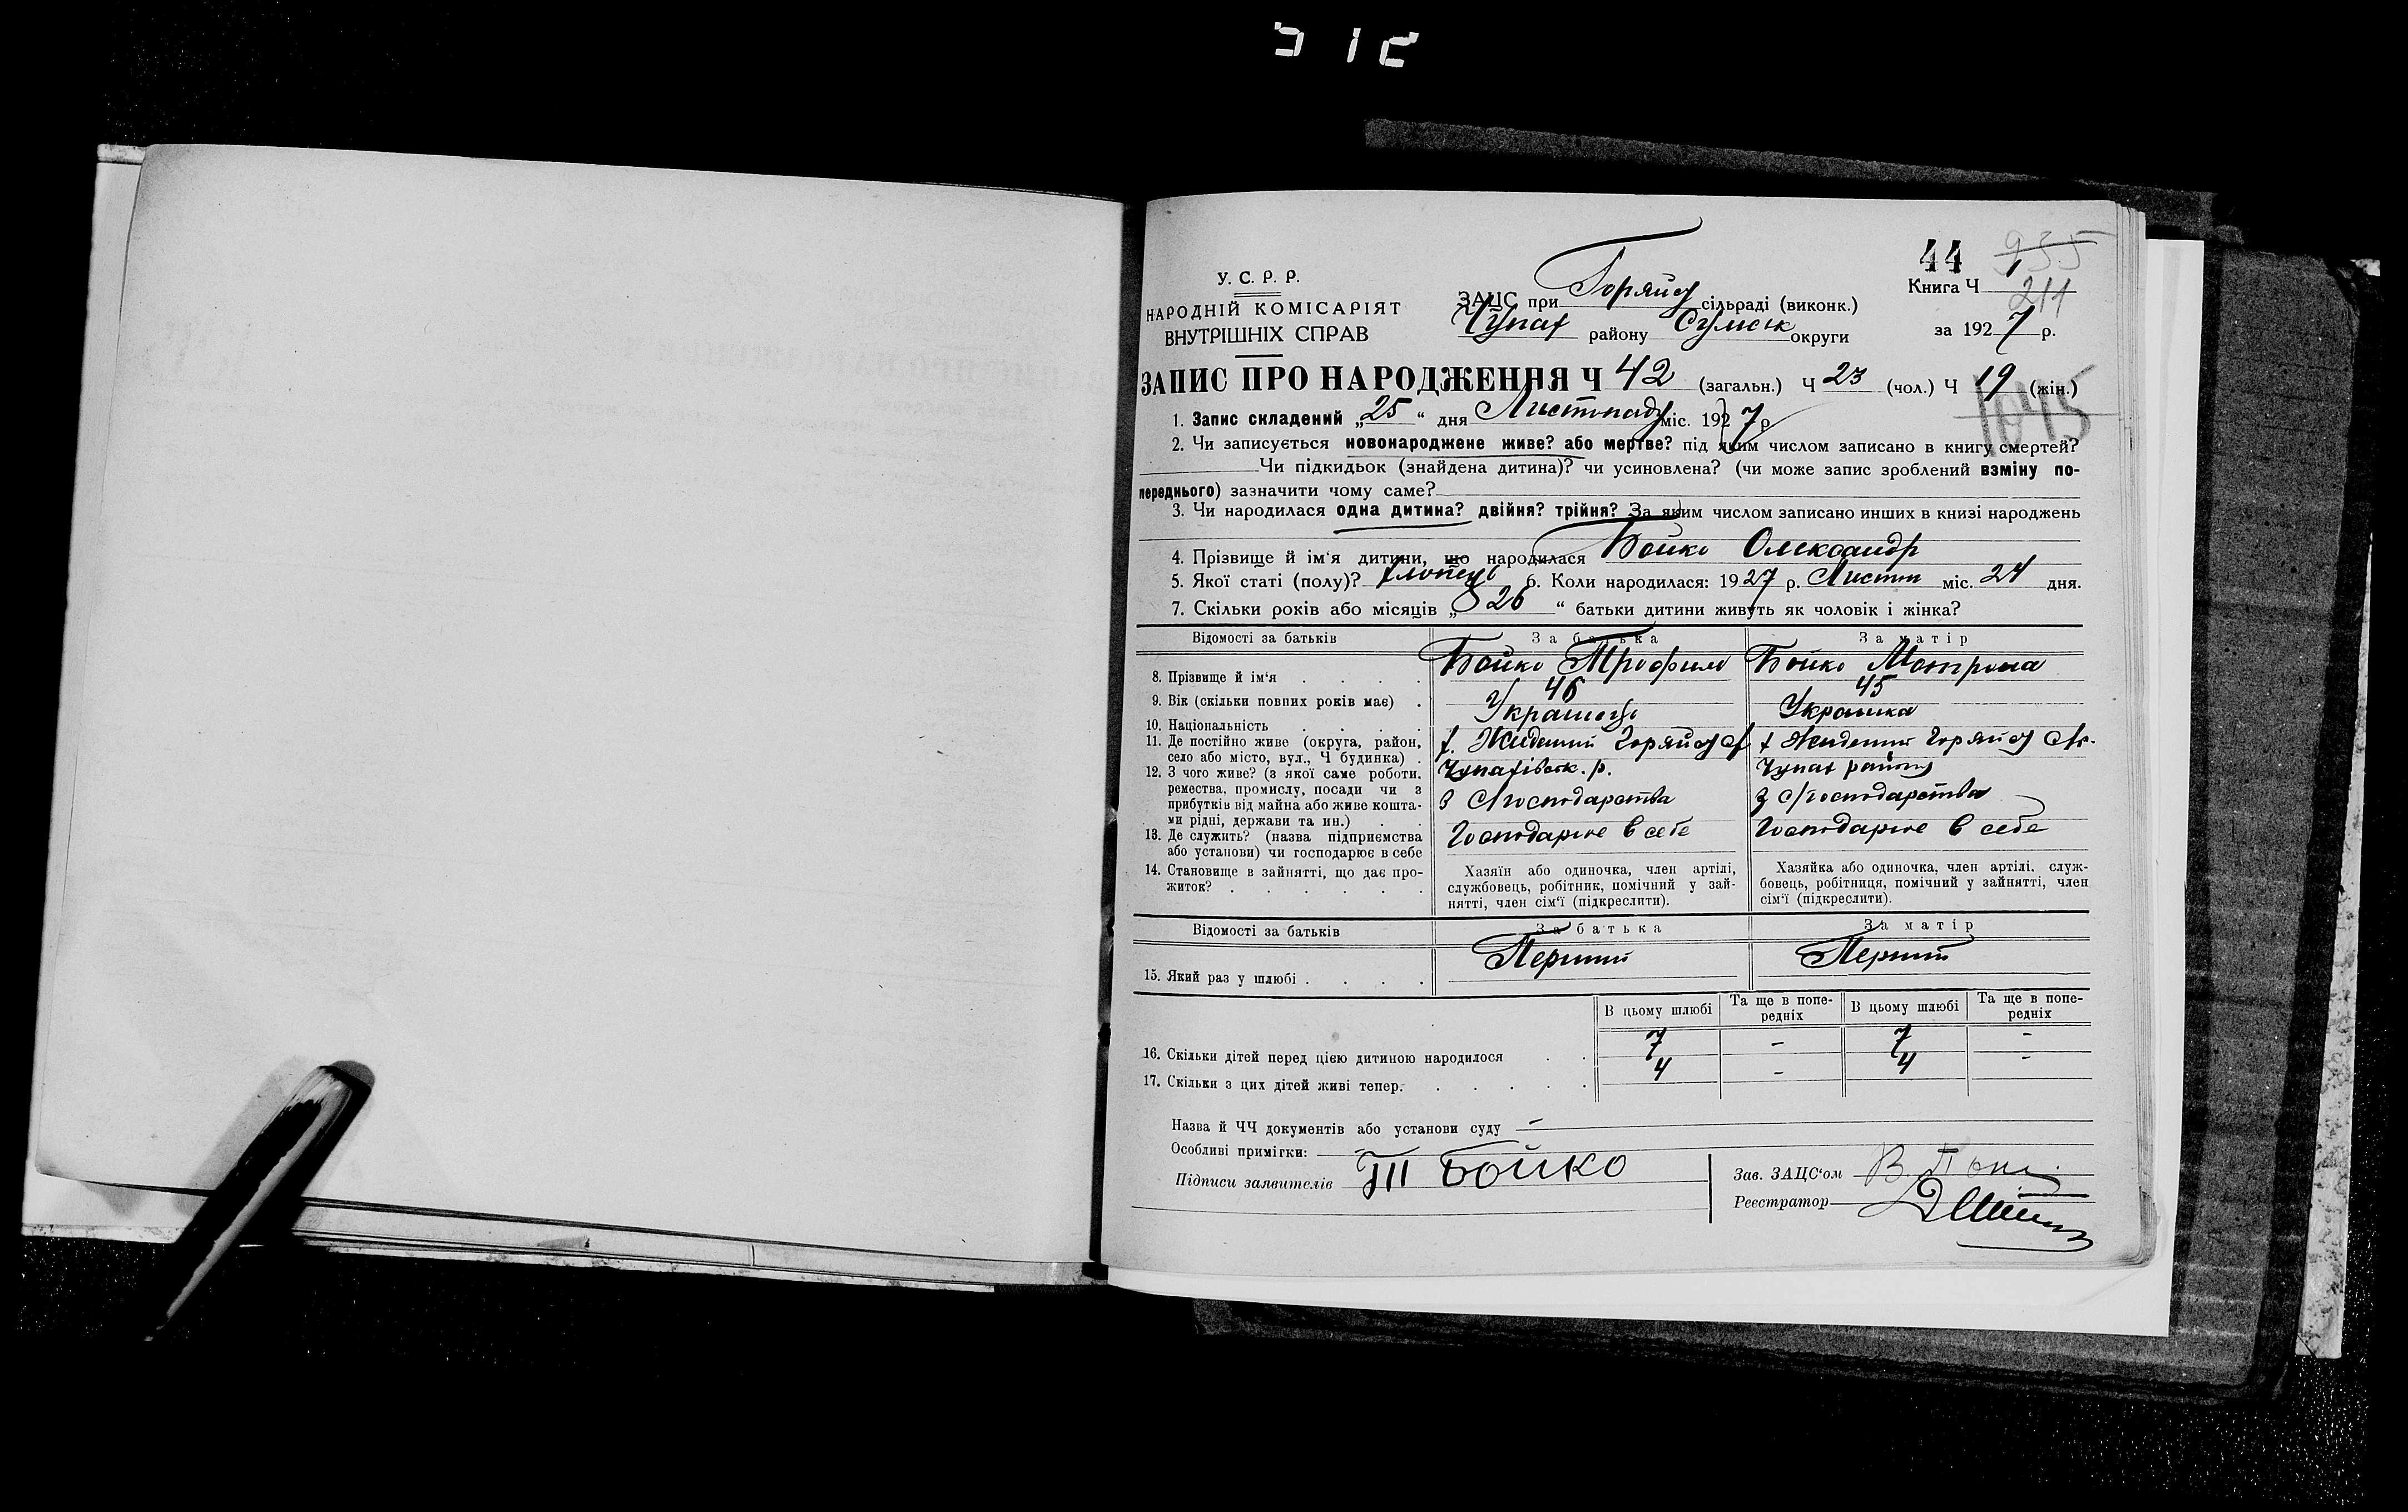 44 935
У. С. Р. Р.
НАРОДНІЙ КОМІСАРІЯТ
ВНУТРІШНІХ СПРАВ
ЗАЦС при Горяйсу сільраді (виконк.)
Чупах району Сумськ округи
Книга Ч 211
за 1927 р.
ЗАПИС ПРО НАРОДЖЕННЯ Ч 42 (загальн.) Ч 23 (чол.) Ч 19 (жін.)
1045
1. Запис складений „25“ дня Листопаду міс. 1927 р
2. Чи записується новонароджене живе? або мертве? під яким числом записано в книгу смертей?
Чи підкидьок (знайдена дитина)? чи усиновлена? (чи може запис зроблений взміну по-
переднього) зазначити чому саме?
3. Чи народилася одна дитина? двійня? трійня? За яким числом записано инших в книзі народжень
4. Прізвище й ім‘я дитини, що народилася Бойко Олександр
5. Якої статі (полу)? хлопець 6. Коли народилася: 1927 р. Листоп міс. 24 дня.
7. Скільки років або місяців „ 26 “ батьки дитини живуть як чоловік і жінка?
Відомості за батьків За батька За матір
8. Прізвище й ім‘я Бойко Трофим Бойко Мотрона
9. Вік (скільки повних років має) 46 45
10. Національність Українець Українка
11. Де постійно живе (округа, район, село або місто, вул., Ч будинка)
х. Жидений Горяйсу с/
Чупахівськ. р.
х Жидений Горяйсу с/
Чупах району
12. З чого живе? (з якої саме роботи, ремества, промислу, посади чи з прибутків від майна або живе кошта-ми рідні, держави та ин.)
з С/господарства з с/господарства
13. Де служить? (назва підприємства або установи) чи господарює в себе
Господарює в себе Господарює в себе
14. Становище в зайнятті, що дає про-житок?
Хазяїн або одиночка, член артілі,
службовець, робітник, помічний у зай-
нятті, член сім‘ї (підкреслити).
Хазяйка або одиночка, член артілі, служ-
бовець, робітниця, помічний у зайнятті, член
сім‘ї (підкреслити).
Відомості за батьків За батька За матір
15. Який раз у шлюбі Перший Перший
В цьому шлюбі Та ще в попе-редніх В цьому шлюбі Та ще в попе-редніх
16. Скільки дітей перед цією дитиною народилося 7 - 7 -
17. Скільки з цих дітей живі тепер. 4 - 4 -
Назва й ЧЧ документів або установи суду -
Особливі примітки:
Підписи заявителів Бойко
Зав. ЗАЦС‘ом
Реєстратор